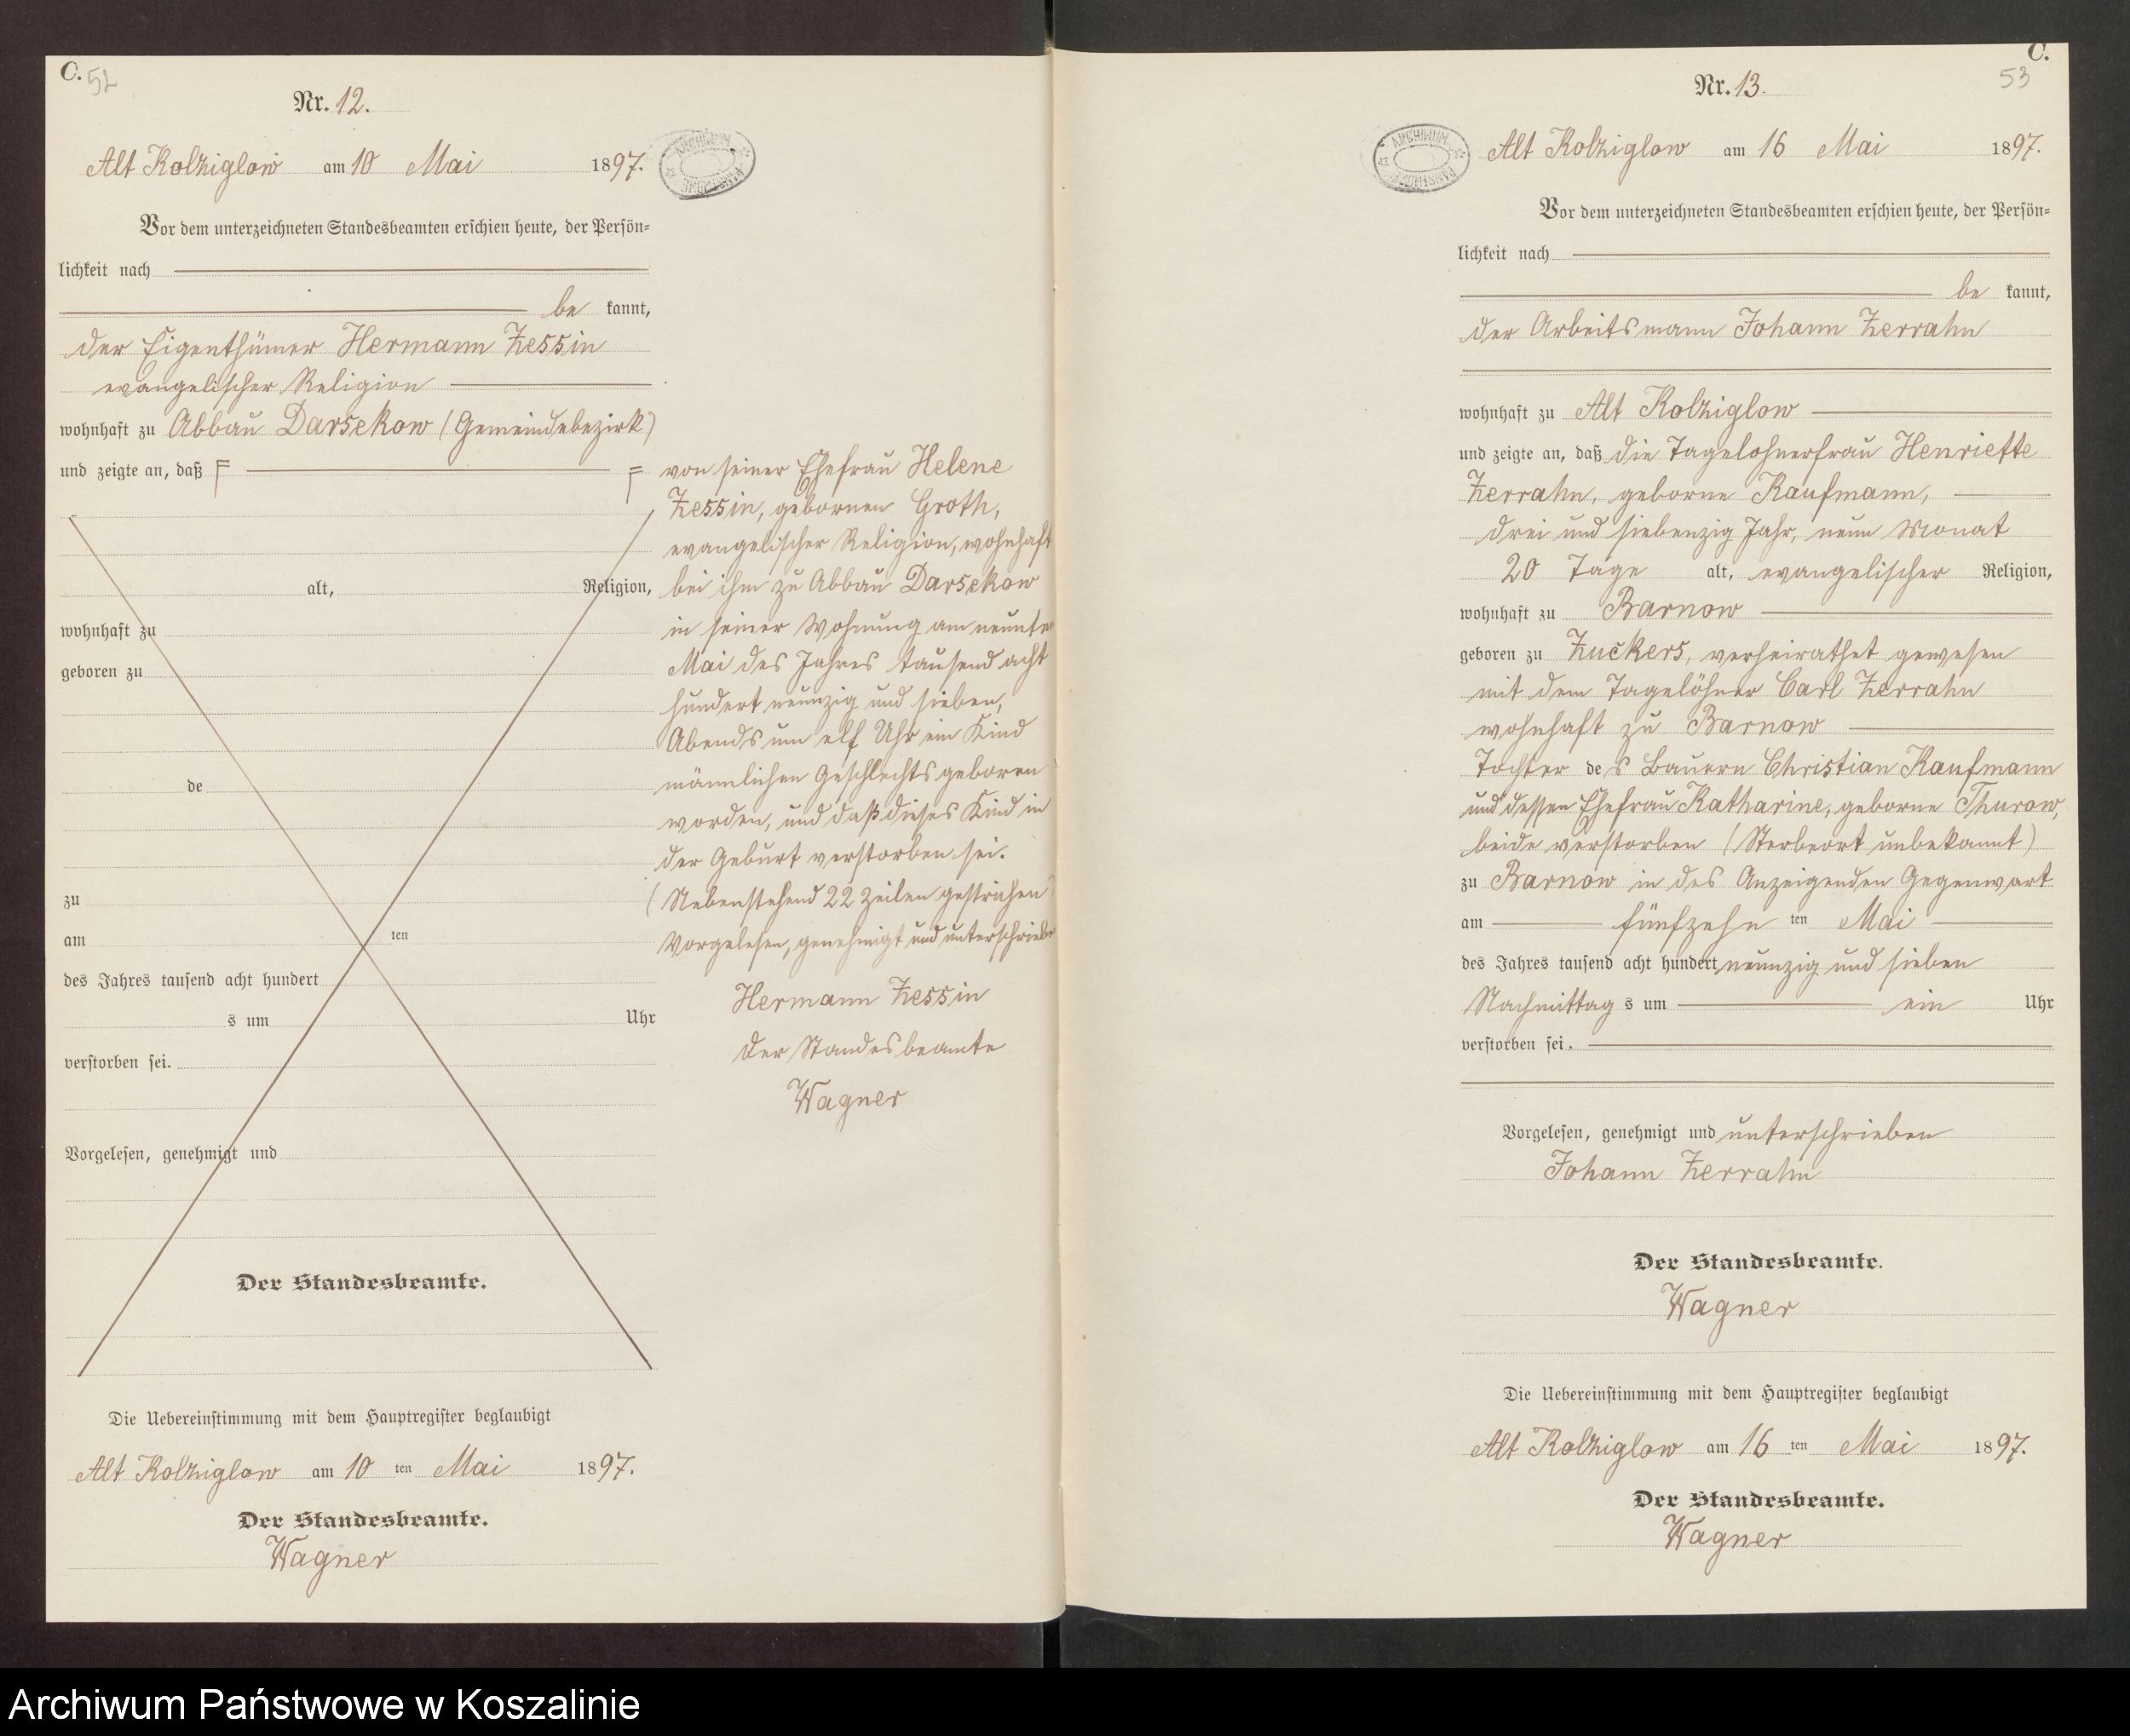 C. 52
Nr. 12.
Alt Kolziglow am 10 Mai 1897.
ARCHIWUM
Vor dem unterzeichneten Standesbeamten erschien heute, der Persön-
lichkeit nach
be kannt,
der Eigenthümer Hermann Zessin
evangelischer Religion
wohnhaft zu Abbau Darsekow (Gemeindebezirk)
und zeigte an, daß
alt, Religion,
wohnhaft zu
geboren zu
de
zu
am ten
des Jahres tausend acht hundert
s um Uhr
verstorben sei.
Vorgelesen, genehmigt und
Der Standesbeamte.
von seiner Ehefrau Helene
Zessin, gebornen Groth,
evangelischer Religion, wohnhaft
bei ihm zu Abbau Darsekow
in seiner Wohnung am neunten
Mai des Jahres tausend acht
hundert neunzig und sieben,
Abends um elf Uhr ein Kind
männlichen Geschlechts geboren
worden, und daß dieses Kind in
der Geburt verstorben sei.
(Nebenstehend 22 Zeilen gestrichen)
Vorgelesen, genehmigt und unterschrieben
Hermann Zessin
Der Standesbeamte
Wagner
Die Uebereinstimmung mit dem Hauptregister beglaubigt
Alt Kolziglow am 10 ten Mai 1897.
Der Standesbeamte.
Wagner
C.
53
Nr. 13.
ARCHIWUM
Alt Kolziglow am 16 Mai 1897.
Vor dem unterzeichneten Standesbeamten erschien heute, der Persön-
lichkeit nach
be kannt,
der Arbeitsmann Johann Zerrahn
wohnhaft zu Alt Kolziglow
und zeigte an, daß die Tagelohnerfrau Henriette
Zerrahn, geborne Kaufmann,
drei und siebenzig Jahr, neun Monat
20 Tage alt, evangelischer Religion,
wohnhaft zu Barnow
geboren zu Zuckers, verheirathet gewesen
mit dem Tagelöhner Carl Zerrahn
wohnhaft zu Barnow
Tochter des Bauern Christian Kaufmann
und dessen Ehefrau Katharine, geborne Thurow,
beide verstorben (Sterbeort unbekannt)
zu Barnow in des Anzeigenden Gegenwart
am fünfzehn ten Mai
des Jahres tausend acht hundert neunzig und sieben
Nachmittag s um ein Uhr
verstorben sei.
Vorgelesen, genehmigt und unterschrieben
Johann Zerrahn
Der Standesbeamte.
Wagner
Die Uebereinstimmung mit dem Hauptregister beglaubigt
Alt Kolziglow am 16 ten Mai 1897.
Der Standesbeamte.
Wagner
Archiwum Państwowe w Koszalinie